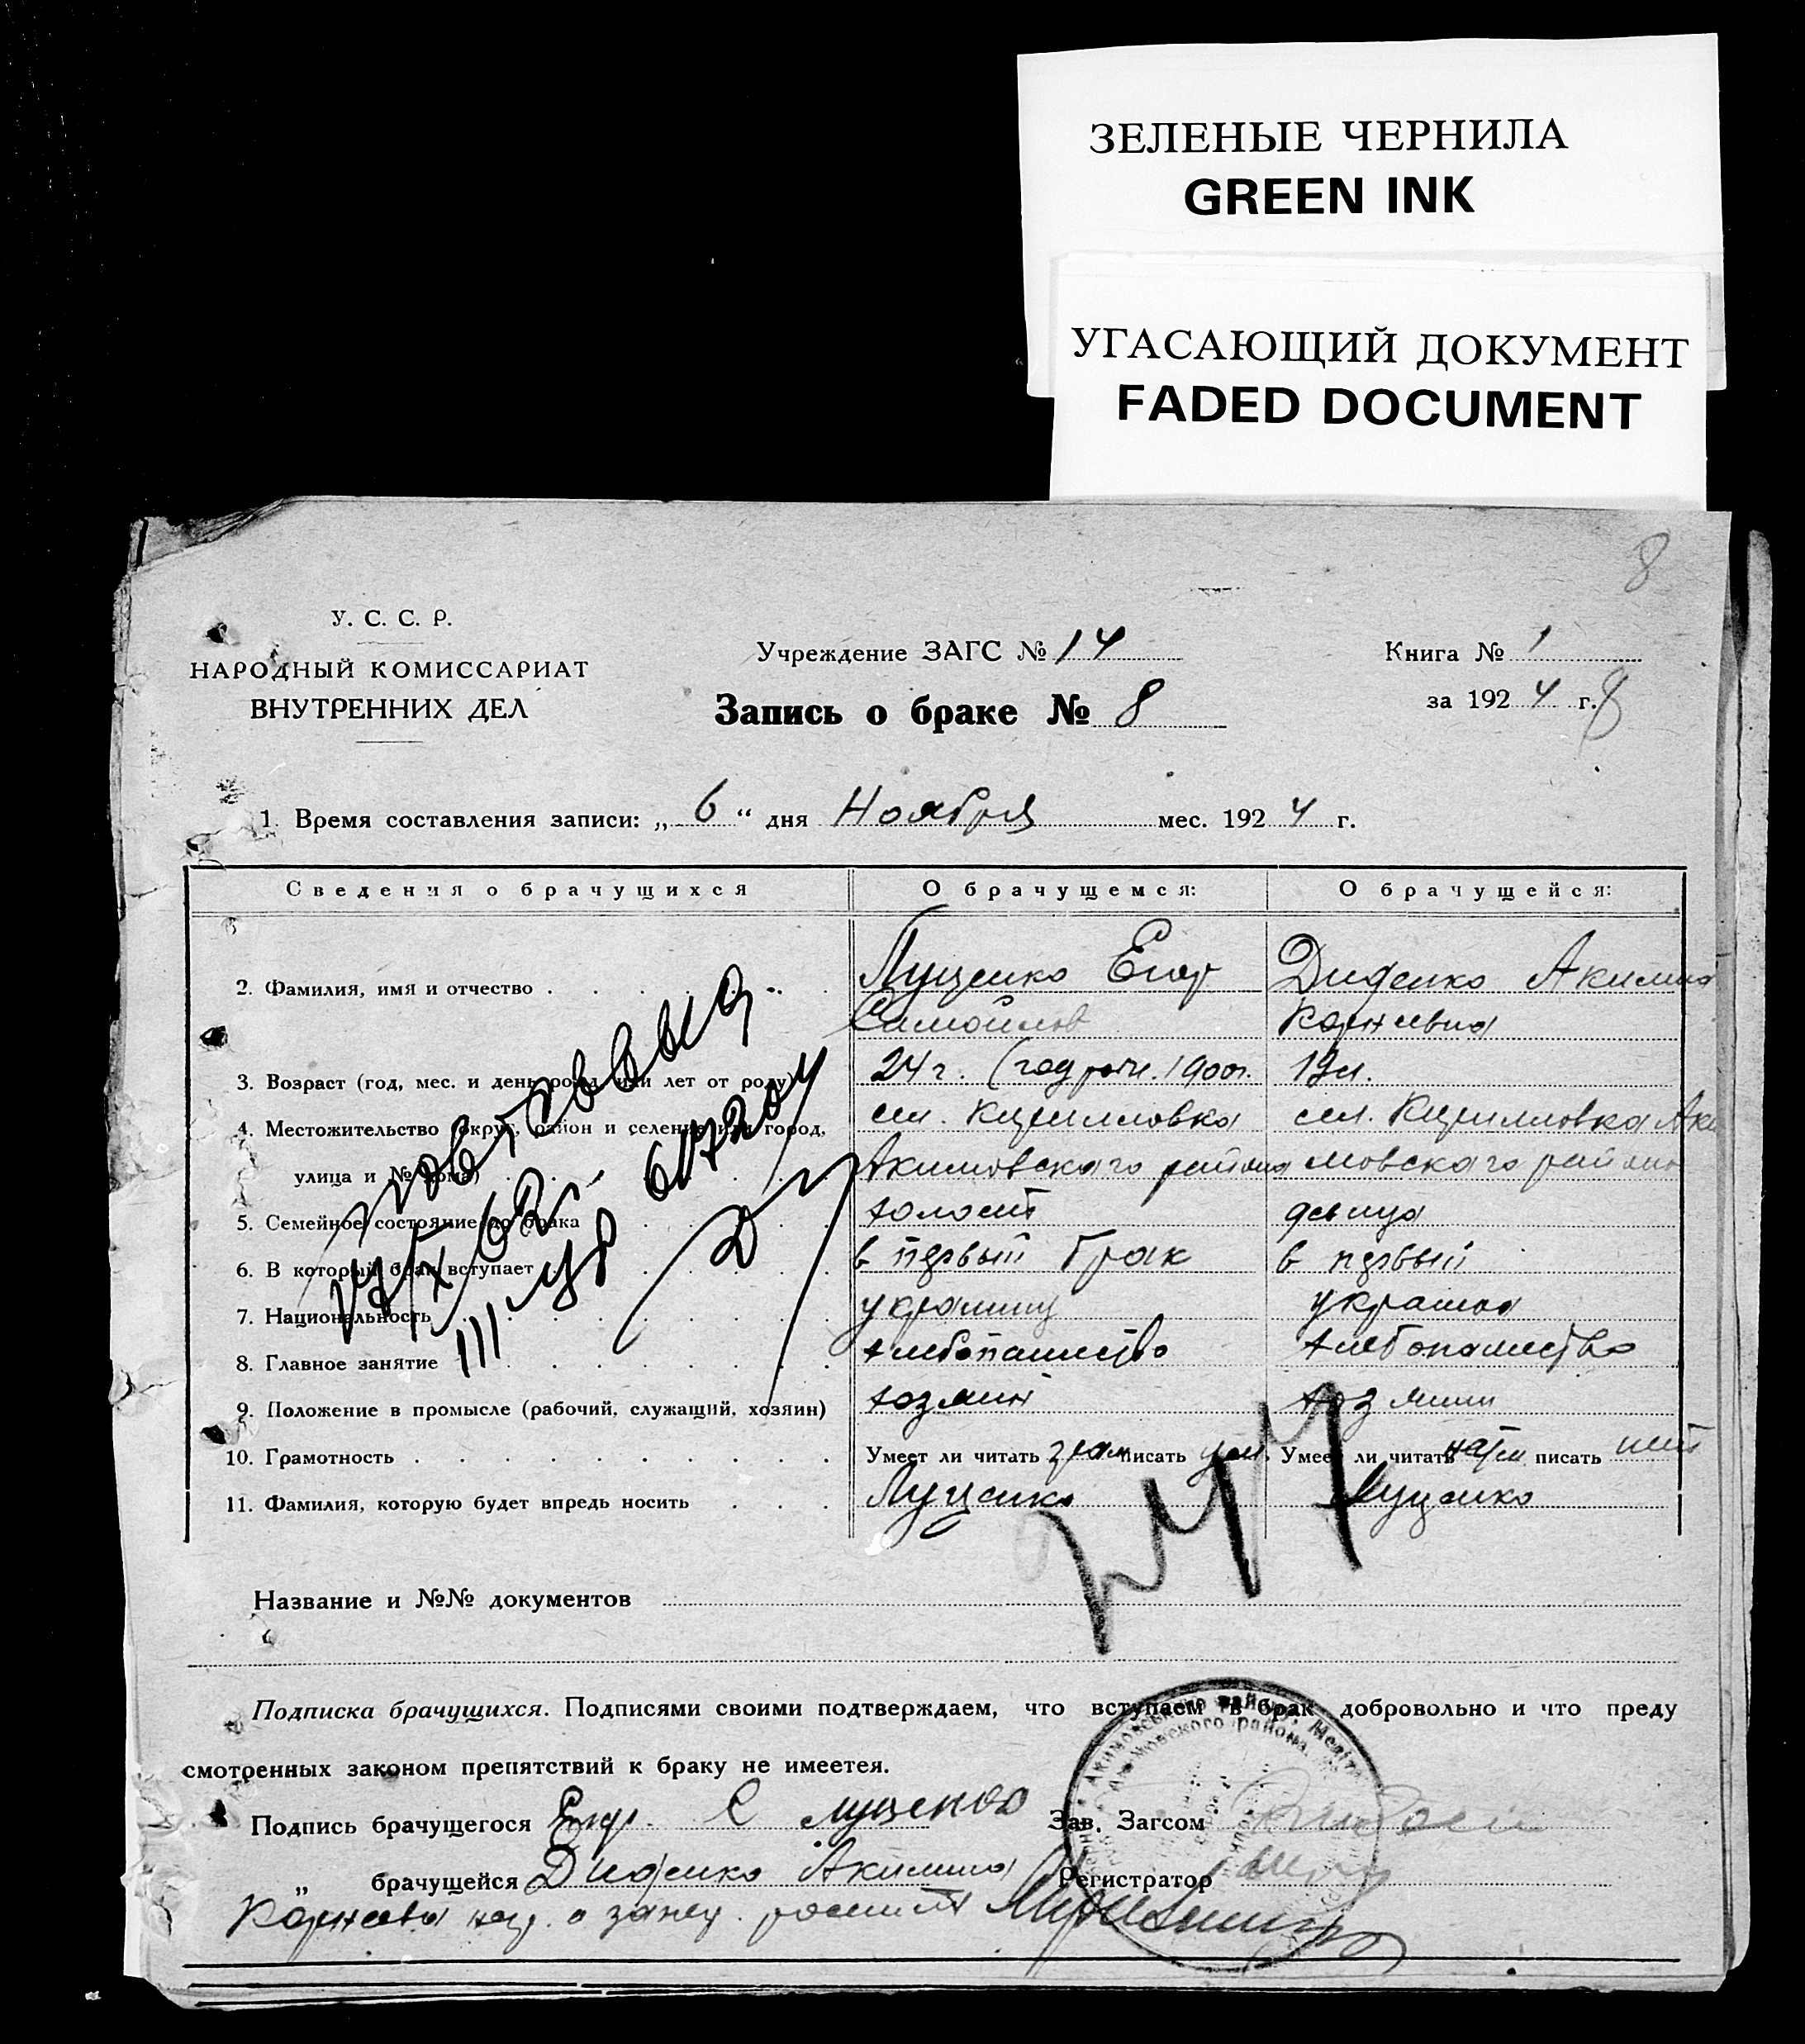 ЗЕЛЕНЫЕ ЧЕРНИЛА
GREEN INK
УГАСАЮЩИЙ ДОКУМЕНТ
FADED DOCUMENT
8
У. С. С. Р.
НАРОДНЫЙ КОМИССАРИАТ
ВНУТРЕННИХ ДЕЛ
Учреждение ЗАГС № 14
Запись о браке № 8
Книга № 1
за 1924 г. 8
1. Время составления записи: „6“ дня Ноября мес. 1924 г.
Сведения о брачущихся О брачущемся: О брачущейся:
2. Фамилия, имя и отчество Луценко Егор Диденко Акилина
Самойлов Корнеевна
3. Возраст (год, мес. и день рожд. или лет от роду) 24 г. (год рожд. 1900 г. 19 л.
4. Местожительство (округ, район и селение или город, сел. Кирилловка сел. Кирилловка Аки
улица и № дома) Акимовского района мовского района
5. Семейное состояние до брака холост девица
6. В который брак вступает в первый брак в первый
7. Национальность украинец украинка
8. Главное занятие хлебопашество хлебопашество
9. Положение в промысле (рабочий, служащий, хозяин) хозяин
10. Грамотность Умеет ли читать писать Умеет ли читать писать
11. Фамилия, которую будет впредь носить Луценко Луценко
Название и №№ документов
Подписка брачущихся. Подписями своими подтверждаем, что вступаем в брак добровольно и что преду
смотренных законом препятствий к браку не имеетея.
Подпись брачущегося Егор С Луценко Зав. Загсом
„ брачущейся Диденко Акилина Регистратор